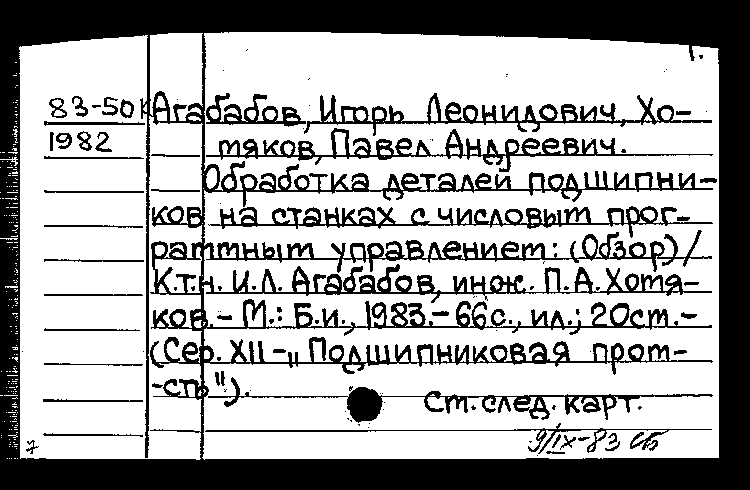 1.
83-50К Агабабов, Игорь Леонидович, Хо-
1982 тяков, Павел Андреевич.
Обработка деталей подшипни-
ков на станках с числовым прог-
раммным управлением: (Обзор)/
К.т.н. И.Л. Агабабов, инж. П.А. Хотя-
ков. – М.: Б.и., 1983. – 66с., ил.; 20см. –
(Сер. XII – „Подшипниковая пром-
-сть").
См. след. карт.
9/IX-83 СБ
7